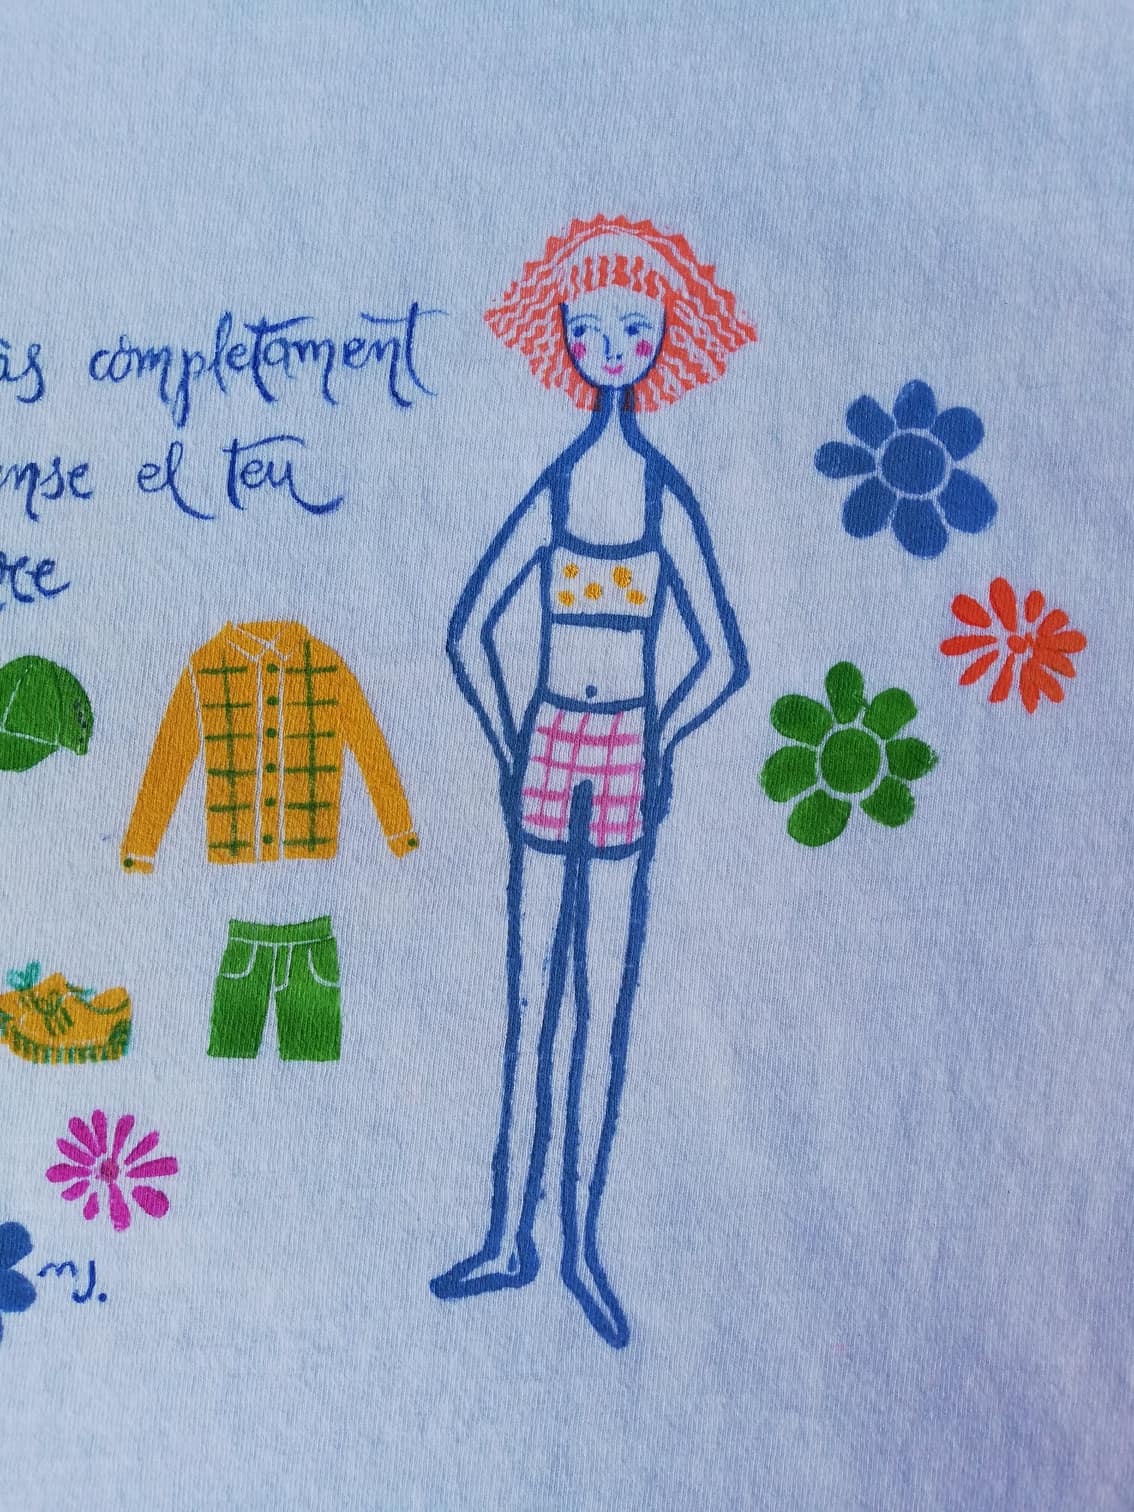 às completament
nse el teu
re
mj.